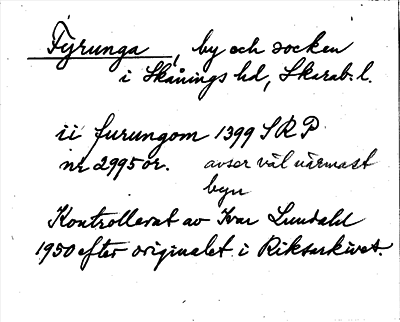 Fyrunga, by och socken
i Skånings hd, Skarab. l.
ii furungom 1399 SRP
nr 2995 or. avser väl närmast
byn
Kontrollerat av Ivar Lundahl
1950 efter originalet i Riksarkivet.